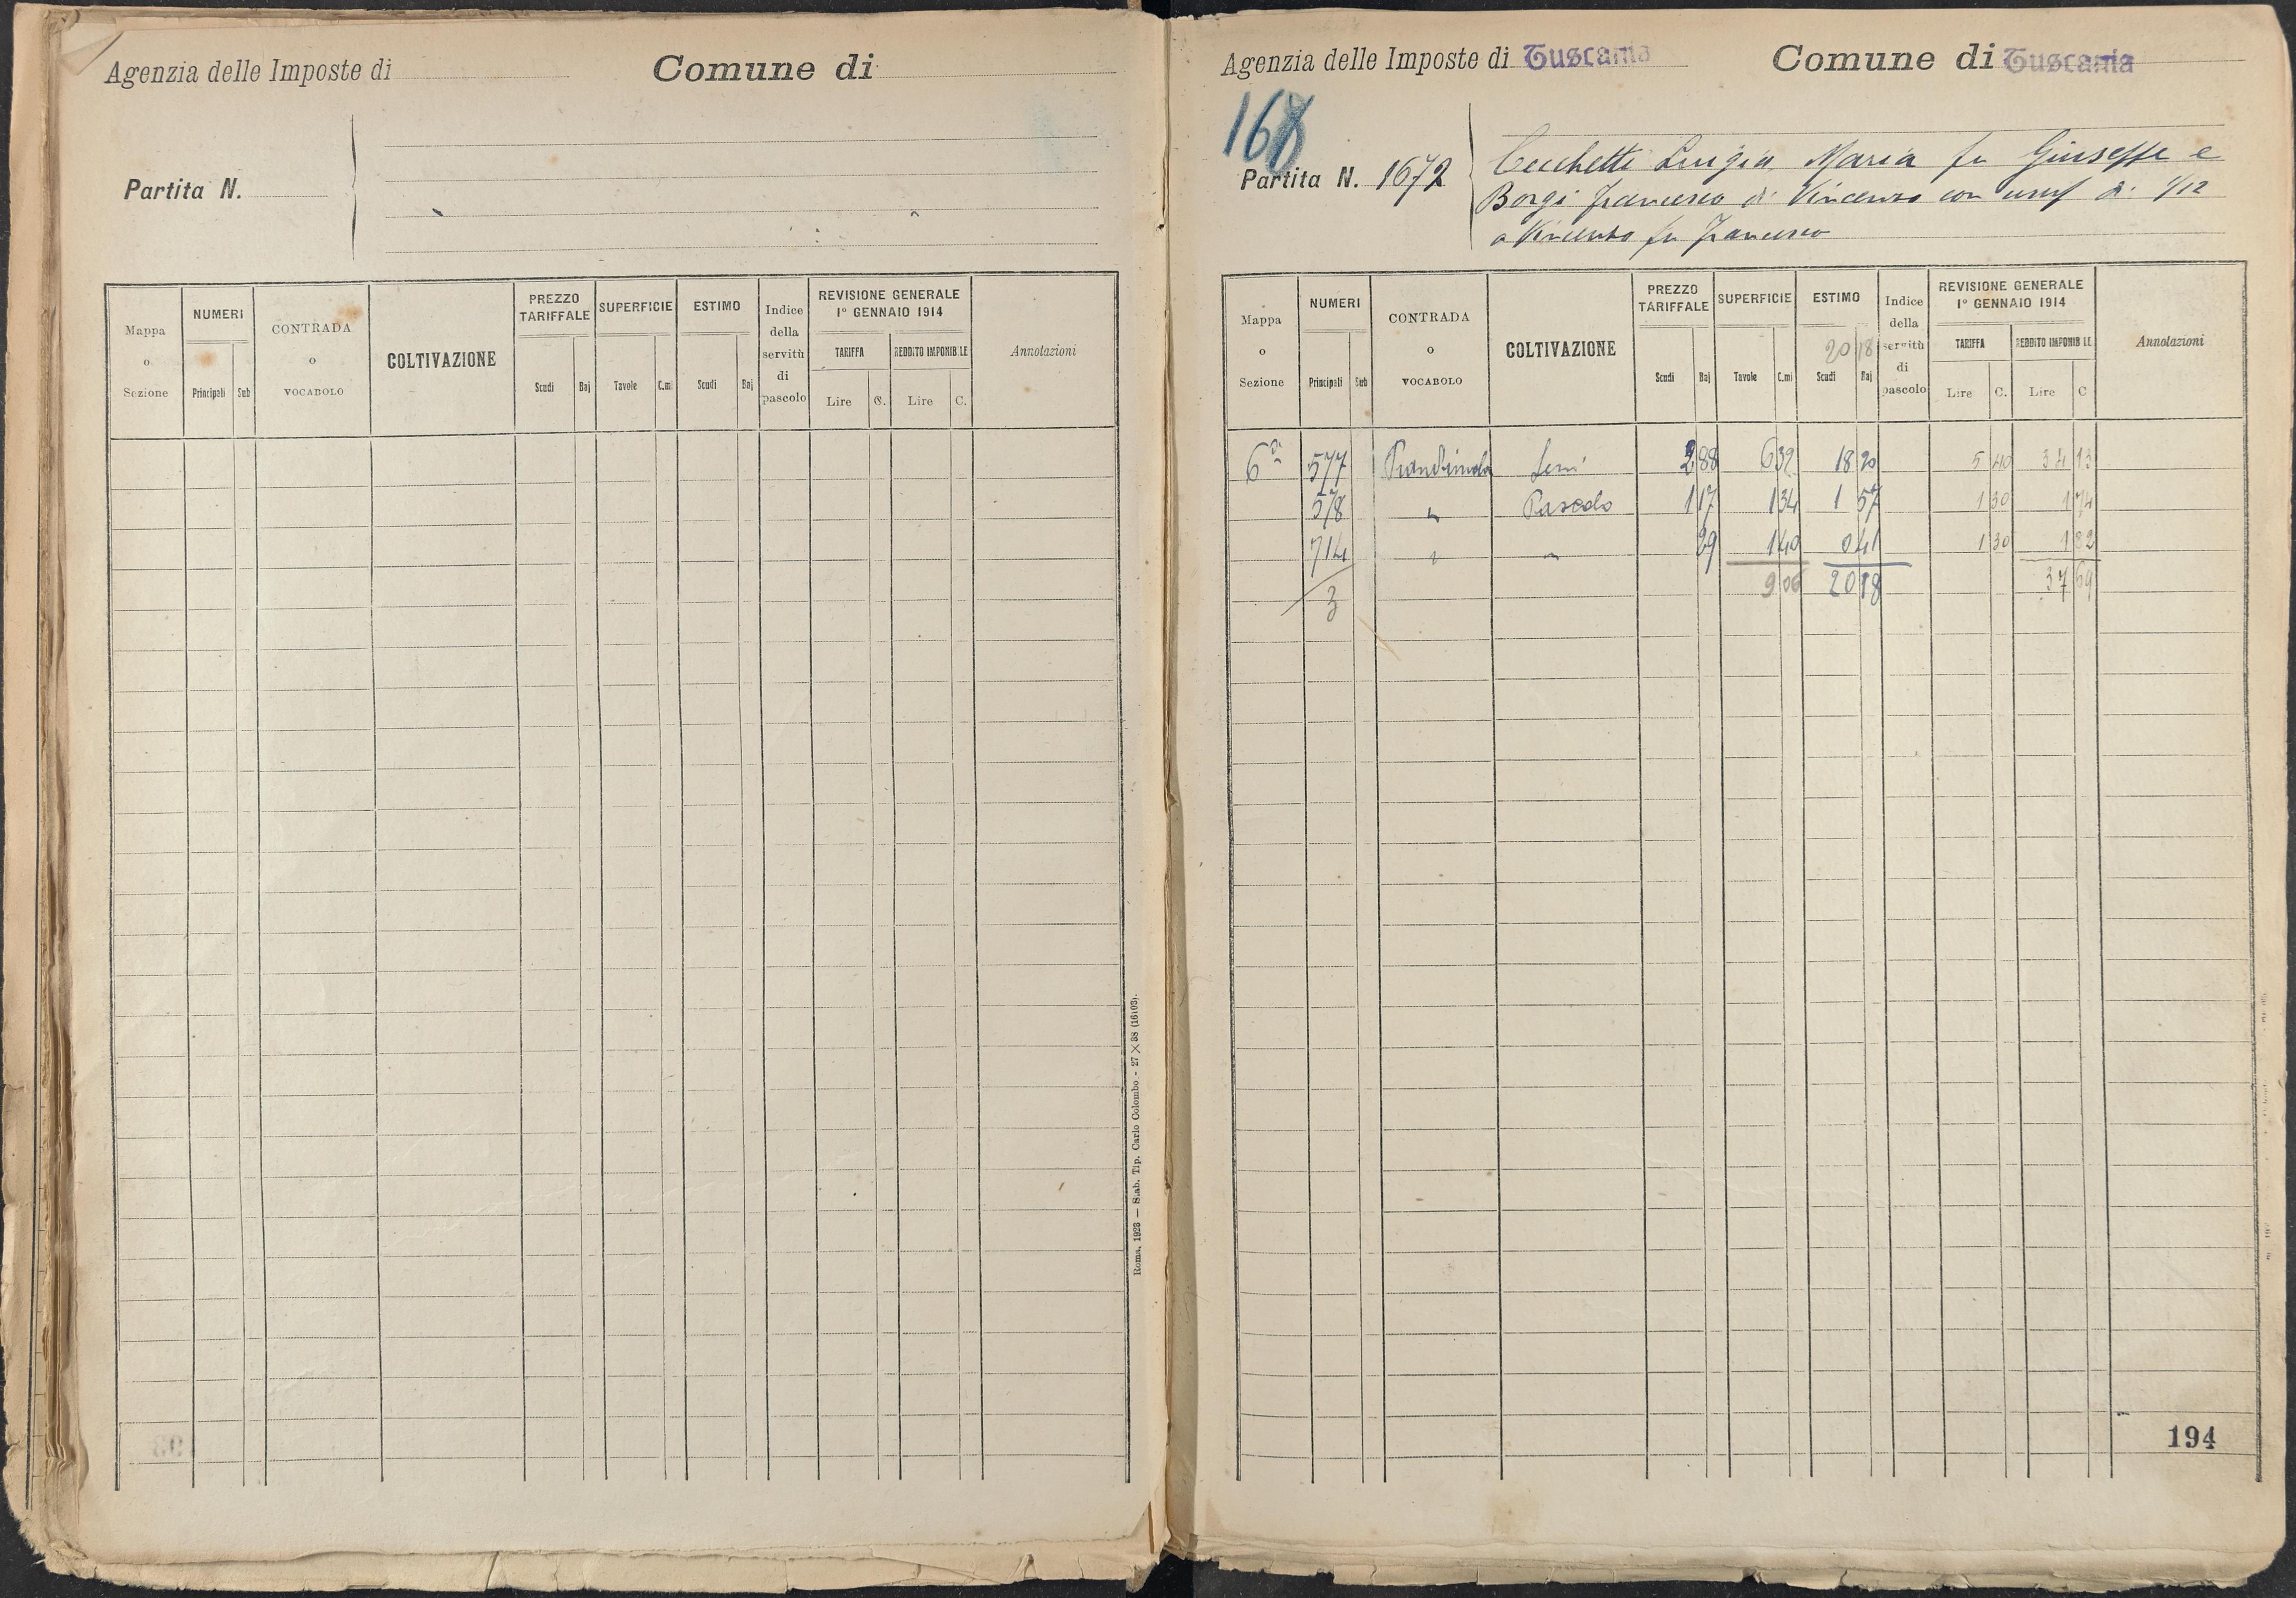 Agenzia delle Imposte di
Comune di
Partita N.
Mappa o Sezione
NUMERI
Principali
Sub
CONTRADA o VOCABOLO
COLTIVAZIONE
PREZZO TARIFFALE
Scudi
Baj
SUPERFICIE
Tavole
C.mi
ESTIMO
Scudi
Baj
Indice della servitù di pascolo
REVISIONE GENERALE
1° GENNAIO 1914
TARIFFA
Lire
C.
REDDITO IMPONIBILE
Lire
C.
Annotazioni
Roma, 1923 — Stab. Tip. Carlo Colombo - 27 X 38
Agenzia delle Imposte di Tuscania
Comune di Tuscania
168
Partita N. 1672
Cecchetti Luigia Maria fu Giuseppe e
Borgi Francesco di Vincenzo con usuf di 1/12
a Vincenzo fu Francesco
Mappa o Sezione
NUMERI
Principali
Sub
CONTRADA o VOCABOLO
COLTIVAZIONE
PREZZO TARIFFALE
Scudi
Baj
SUPERFICIE
Tavole
C.mi
ESTIMO
20 18
Scudi
Baj
Indice della servitù di pascolo
REVISIONE GENERALE
1° GENNAIO 1914
TARIFFA
Lire
C.
REDDITO IMPONIBILE
Lire
C
Annotazioni
6a 577 Piandimola Semi 2 88 6 32 18 20 5 40 34 13
578 " Pascolo 1 17 1 34 1 57 1 30 1 74
714 " " 29 1 40 0 41 1 30 1 82
3 9 06 20 18 37 69
194